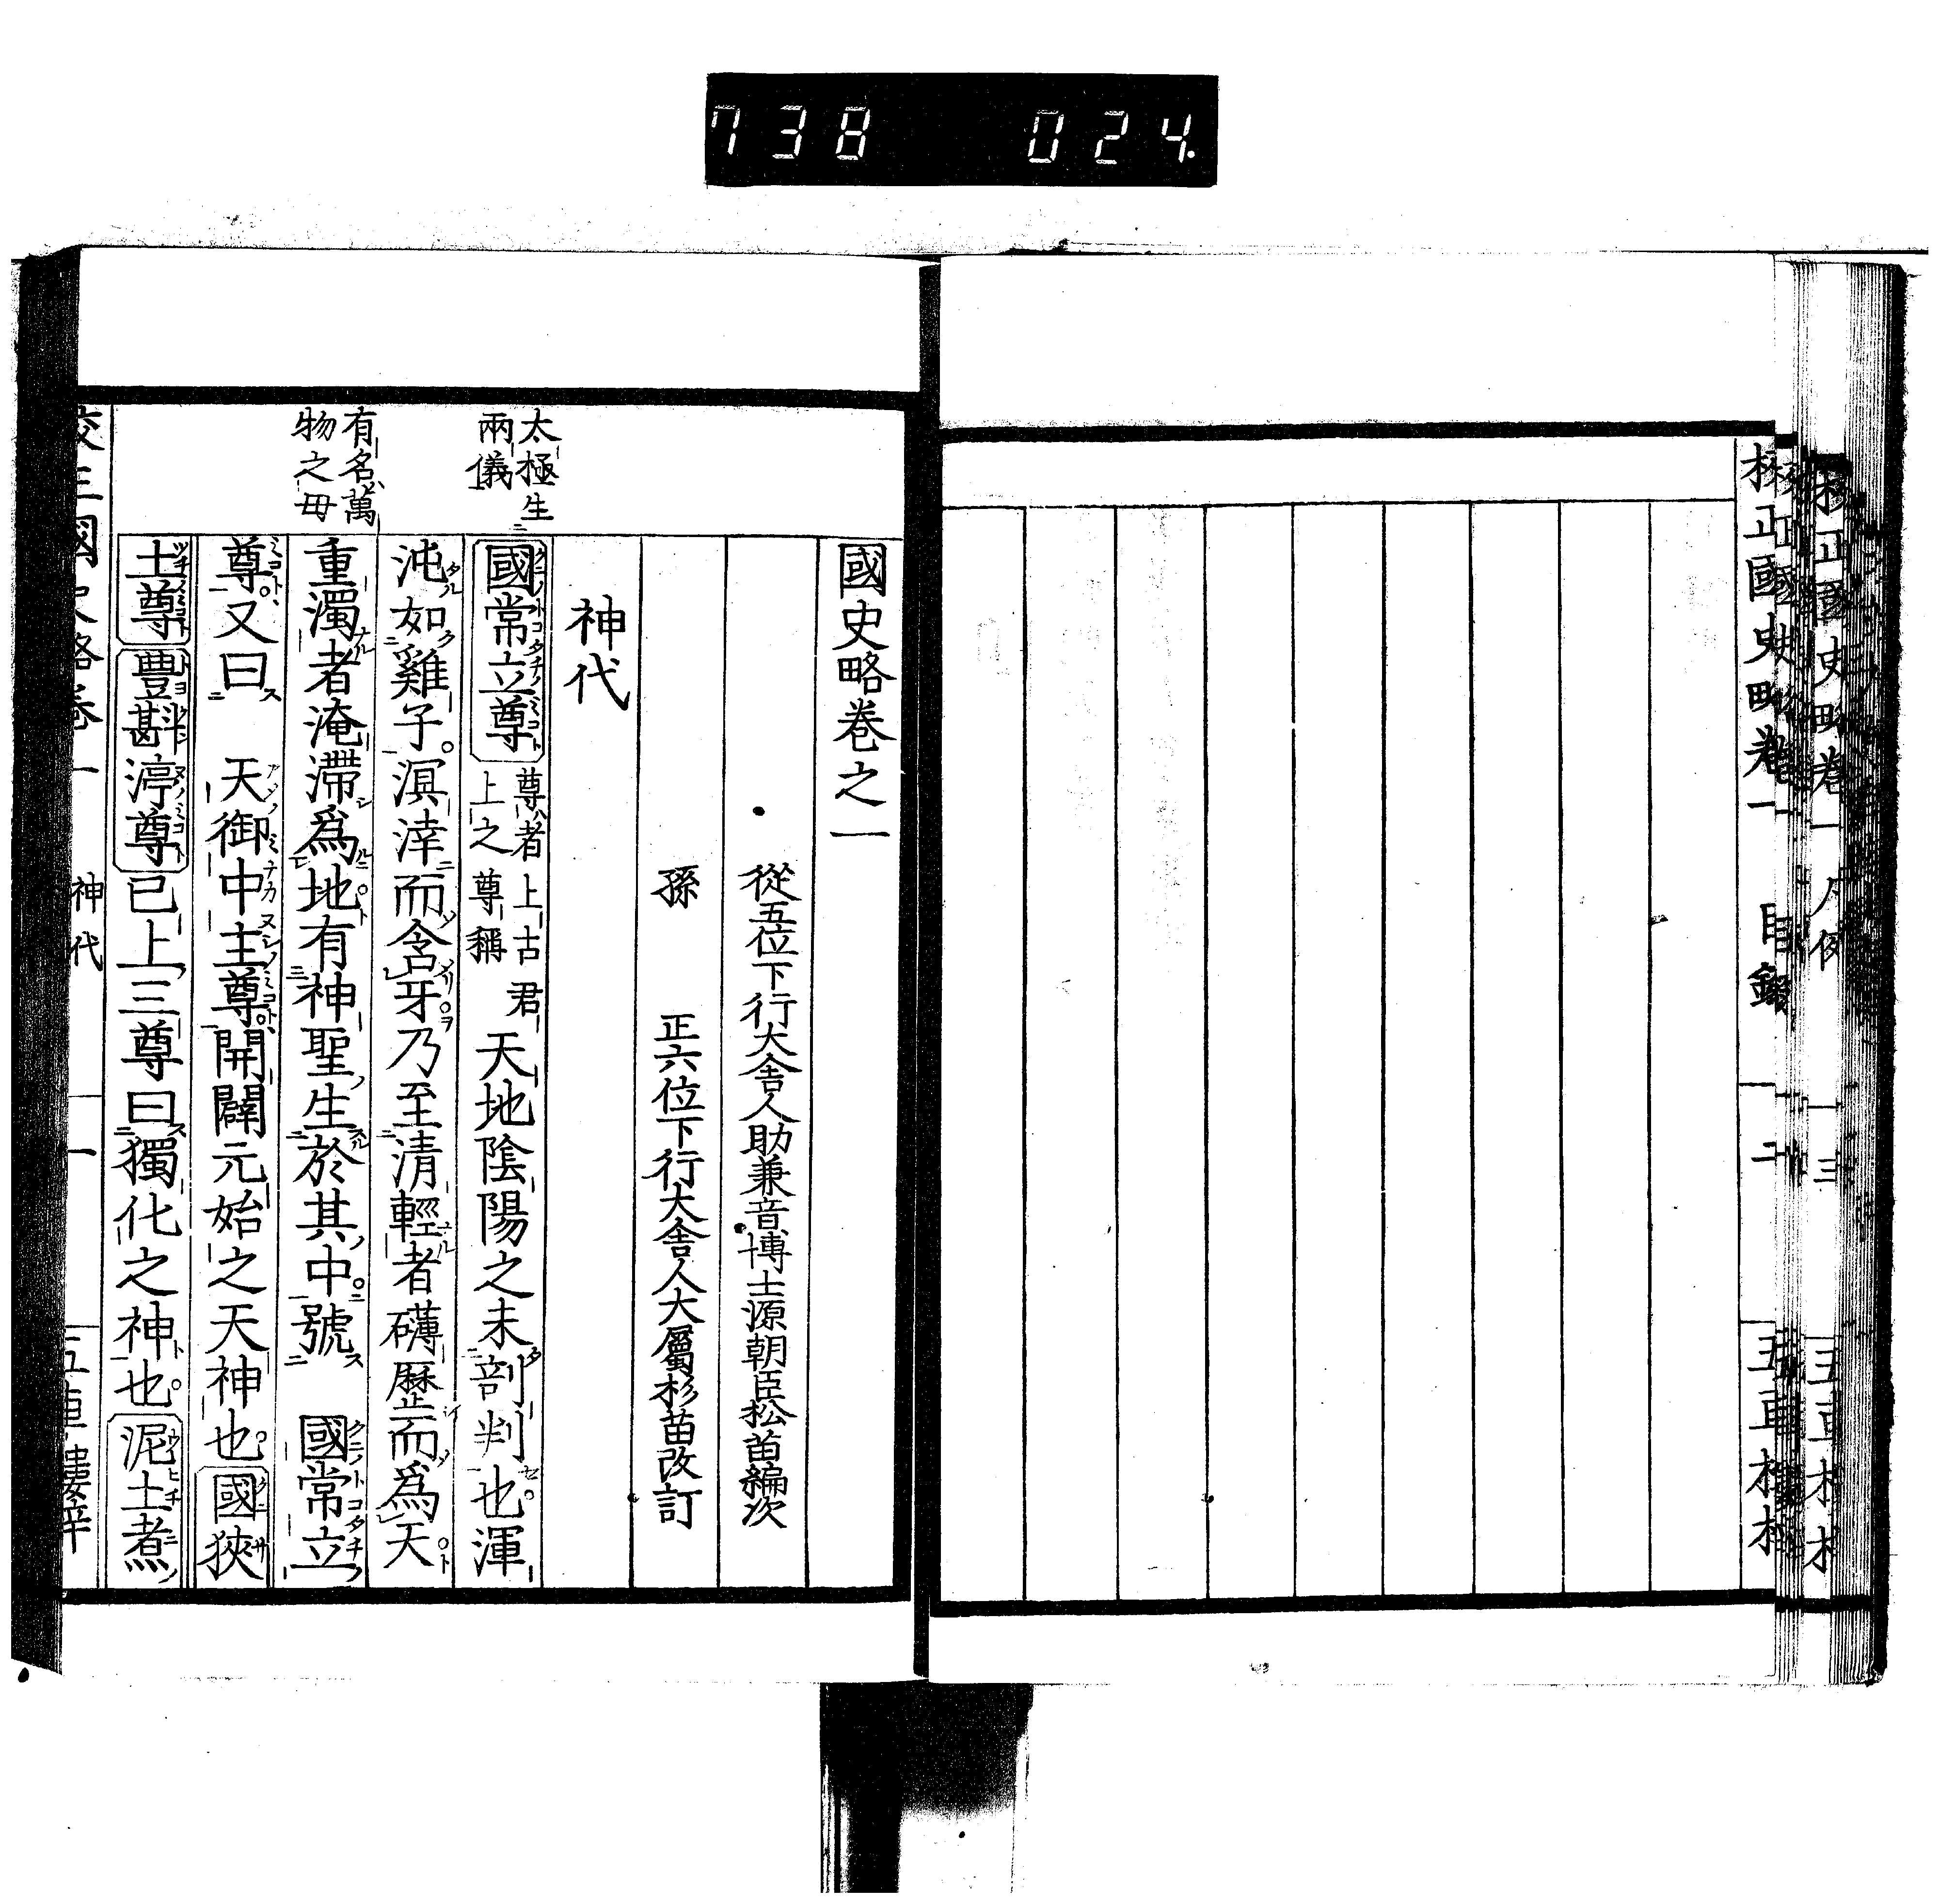 738 024.
校正國史略卷一 目錄 二
國史略卷之一
從五位下行大舍人助兼音博士源朝臣松苗編次
孫 正六位下行大舍人大屬杉苗改訂
神代
太極生
兩儀
國常立尊 尊者上古君上之尊稱 天地陰陽之未剖判也渾
沌如雞子溟涬而含牙乃至清輕者礴歷而爲天
有名萬
物之母
重濁者淹滯爲地有神聖生於其中號 國常立
尊又曰 天御中主尊開闢元始之天神也國狹
土尊豐斟渟尊已上三尊曰獨化之神也泥土煮
神代 一